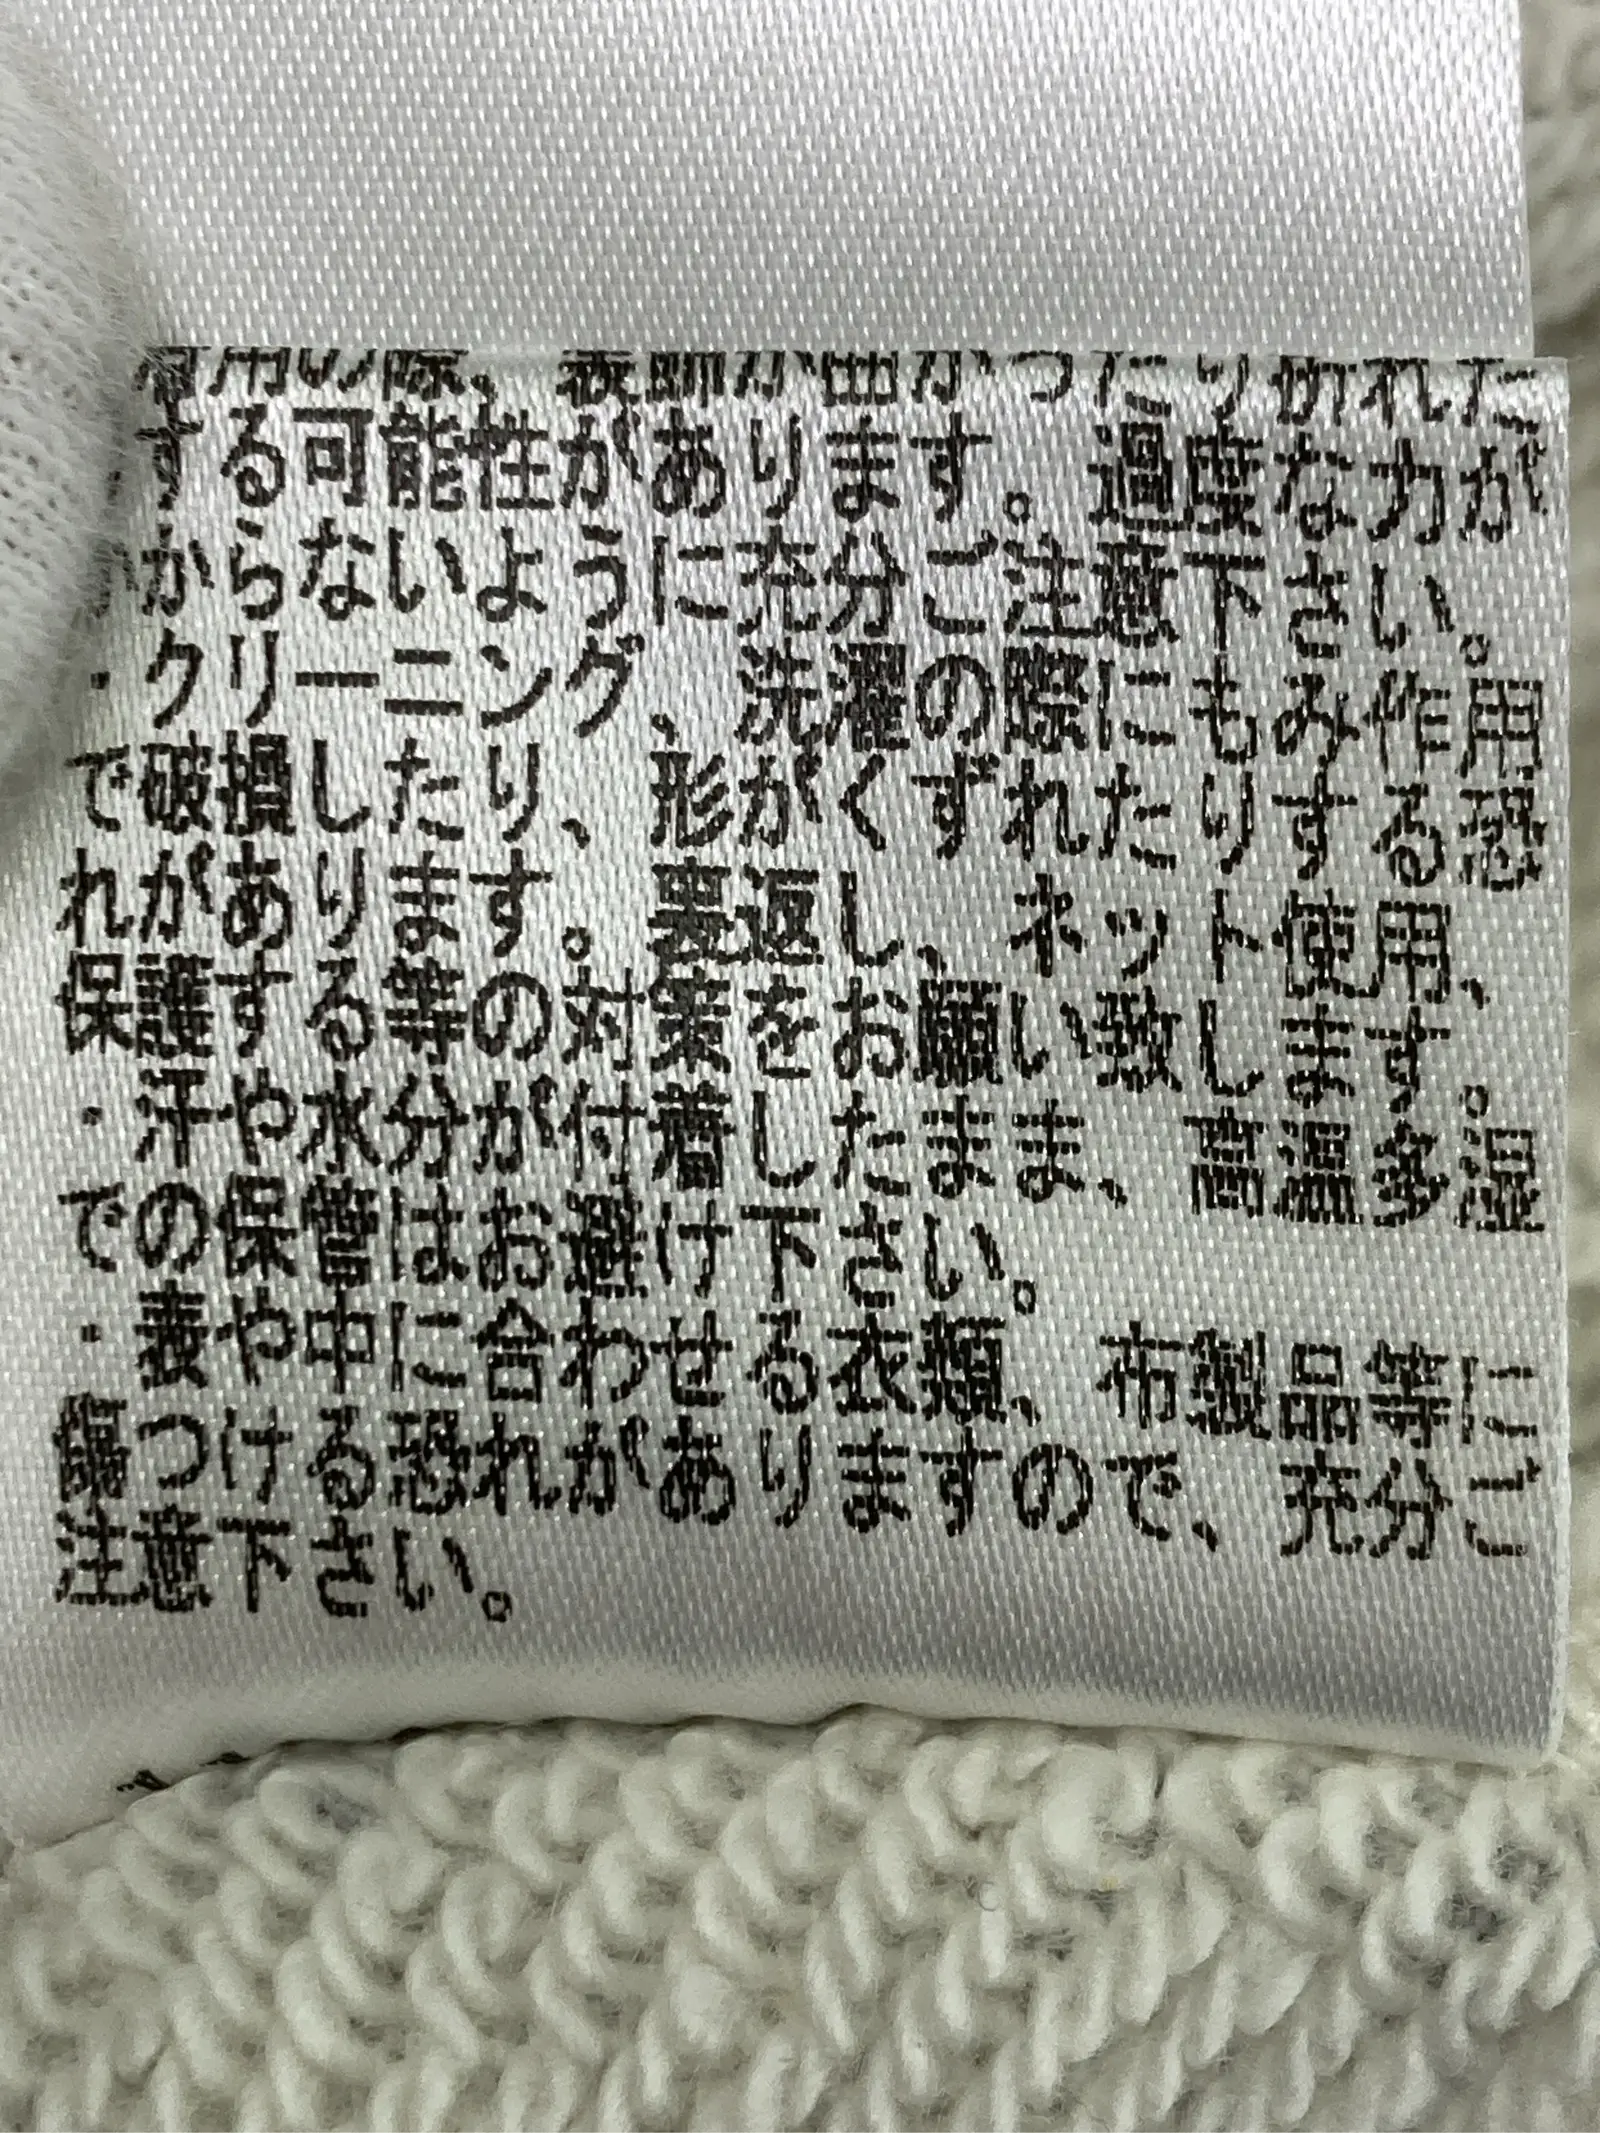 着用の際、装飾が曲がったり折れた
する可能性があります。過度な力が
かからないように充分ご注意下さい。
・クリーニング、洗濯の際にもみ作用
で破損したり、形がくずれたりする恐
れがあります。裏返し、ネット使用、
保護する等の対策をお願い致します。
・汗や水分が付着したまま、高温多湿
での保管はお避け下さい。
・裏や中に合わせる衣類、布製品等に
傷つける恐れがありますので、充分ご
注意下さい。